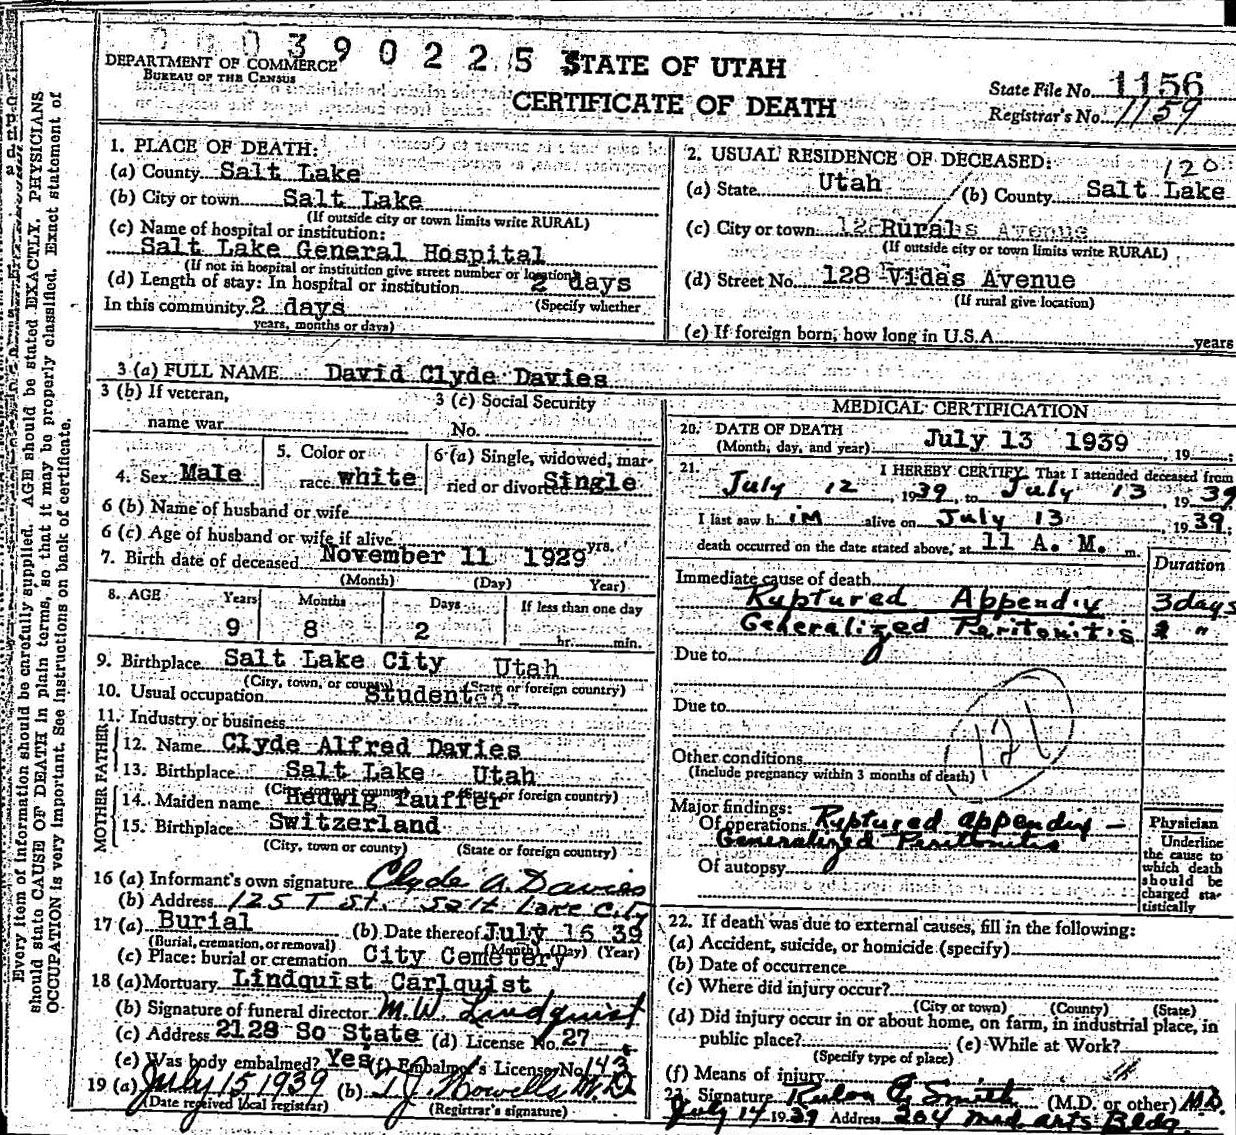 0 0 0 3 9 0 2 2 5 3
DEPARTMENT OF COMMERCE
BUREAU OF THE CENSUS
STATE OF UTAH
CERTIFICATE OF DEATH
State File No. 1156
Registrar's No. 1159
1. PLACE OF DEATH:
(a) County Salt Lake
(b) City or town Salt Lake
(If outside city or town limits write RURAL)
(c) Name of hospital or institution:
Salt Lake General Hospital
(If not in hospital or institution give street number or location)
(d) Length of stay: In hospital or institution 2 days
(Specify whether
In this community 2 days
years, months or days)
2. USUAL RESIDENCE OF DECEASED:
120
(a) State Utah (b) County Salt Lake
(c) City or town Rural
(If outside city or town limits write RURAL)
(d) Street No. 128 Vidas Avenue
(If rural give location)
(e) If foreign born, how long in U.S.A. years
3 (a) FULL NAME David Clyde Davies
3 (b) If veteran,
name war
3 (c) Social Security
No.
4. Sex Male
5. Color or
race white
6 (a) Single, widowed, mar-
ried or divorced Single
6 (b) Name of husband or wife
6 (c) Age of husband or wife if alive yrs.
7. Birth date of deceased November 11 1929
(Month) (Day) Year)
8. AGE Years Months Days If less than one day
9 8 2 hr. min.
9. Birthplace Salt Lake City Utah
(City, town, or county) (State or foreign country)
10. Usual occupation Student
11. Industry or business
FATHER
12. Name Clyde Alfred Davies
13. Birthplace Salt Lake Utah
(City, town or county) (State or foreign country)
MOTHER
14. Maiden name Hedwig Tauffer
15. Birthplace Switzerland
(City, town or county) (State or foreign country)
16 (a) Informant's own signature Clyde A. Davies
(b) Address 125 T St. Salt Lake City
17 (a) Burial (b) Date thereof July 16 39
(Burial, cremation, or removal) (Month) (Day) (Year)
(c) Place: burial or cremation City Cemetery
18 (a) Mortuary Lindquist Carlquist
(b) Signature of funeral director M.W. Lindquist
(c) Address 2128 So State (d) License No. 27
(e) Was body embalmed? Yes (f) Embalmer's License No. 143
19 (a) July 15 1939 (b) T.J. Howells M.D.
(Date received local registrar) (Registrar's signature)
MEDICAL CERTIFICATION
20. DATE OF DEATH
(Month, day, and year) July 13 1939, 19
21. I HEREBY CERTIFY, That I attended deceased from
July 12, 1939, to July 13, 1939
I last saw him alive on July 13 1939.
death occurred on the date stated above, at 11 A. M. m.
Duration
Immediate cause of death
Ruptured Appendix 3 days
Generalized Peritonitis "
Due to
Due to
121
Other conditions
(Include pregnancy within 3 months of death)
Major findings:
Of operations Ruptured appendix —
Generalized Peritonitis
Of autopsy
Physician
Underline
the cause to
which death
should be
charged sta-
tistically
22. If death was due to external causes, fill in the following:
(a) Accident, suicide, or homicide (specify)
(b) Date of occurrence
(c) Where did injury occur?
(City or town) (County) (State)
(d) Did injury occur in or about home, on farm, in industrial place, in
public place? (e) While at Work?
(Specify type of place)
(f) Means of injury
23. Signature Rulon Smith (M.D. or other) M.D.
July 14 1939 Address 204 Med. Arts Bldg.
Every item of information should be carefully supplied. AGE should be stated EXACTLY. PHYSICIANS
should state CAUSE OF DEATH in plain terms, so that it may be properly classified. Exact statement of
OCCUPATION is very important. See instructions on back of certificate.